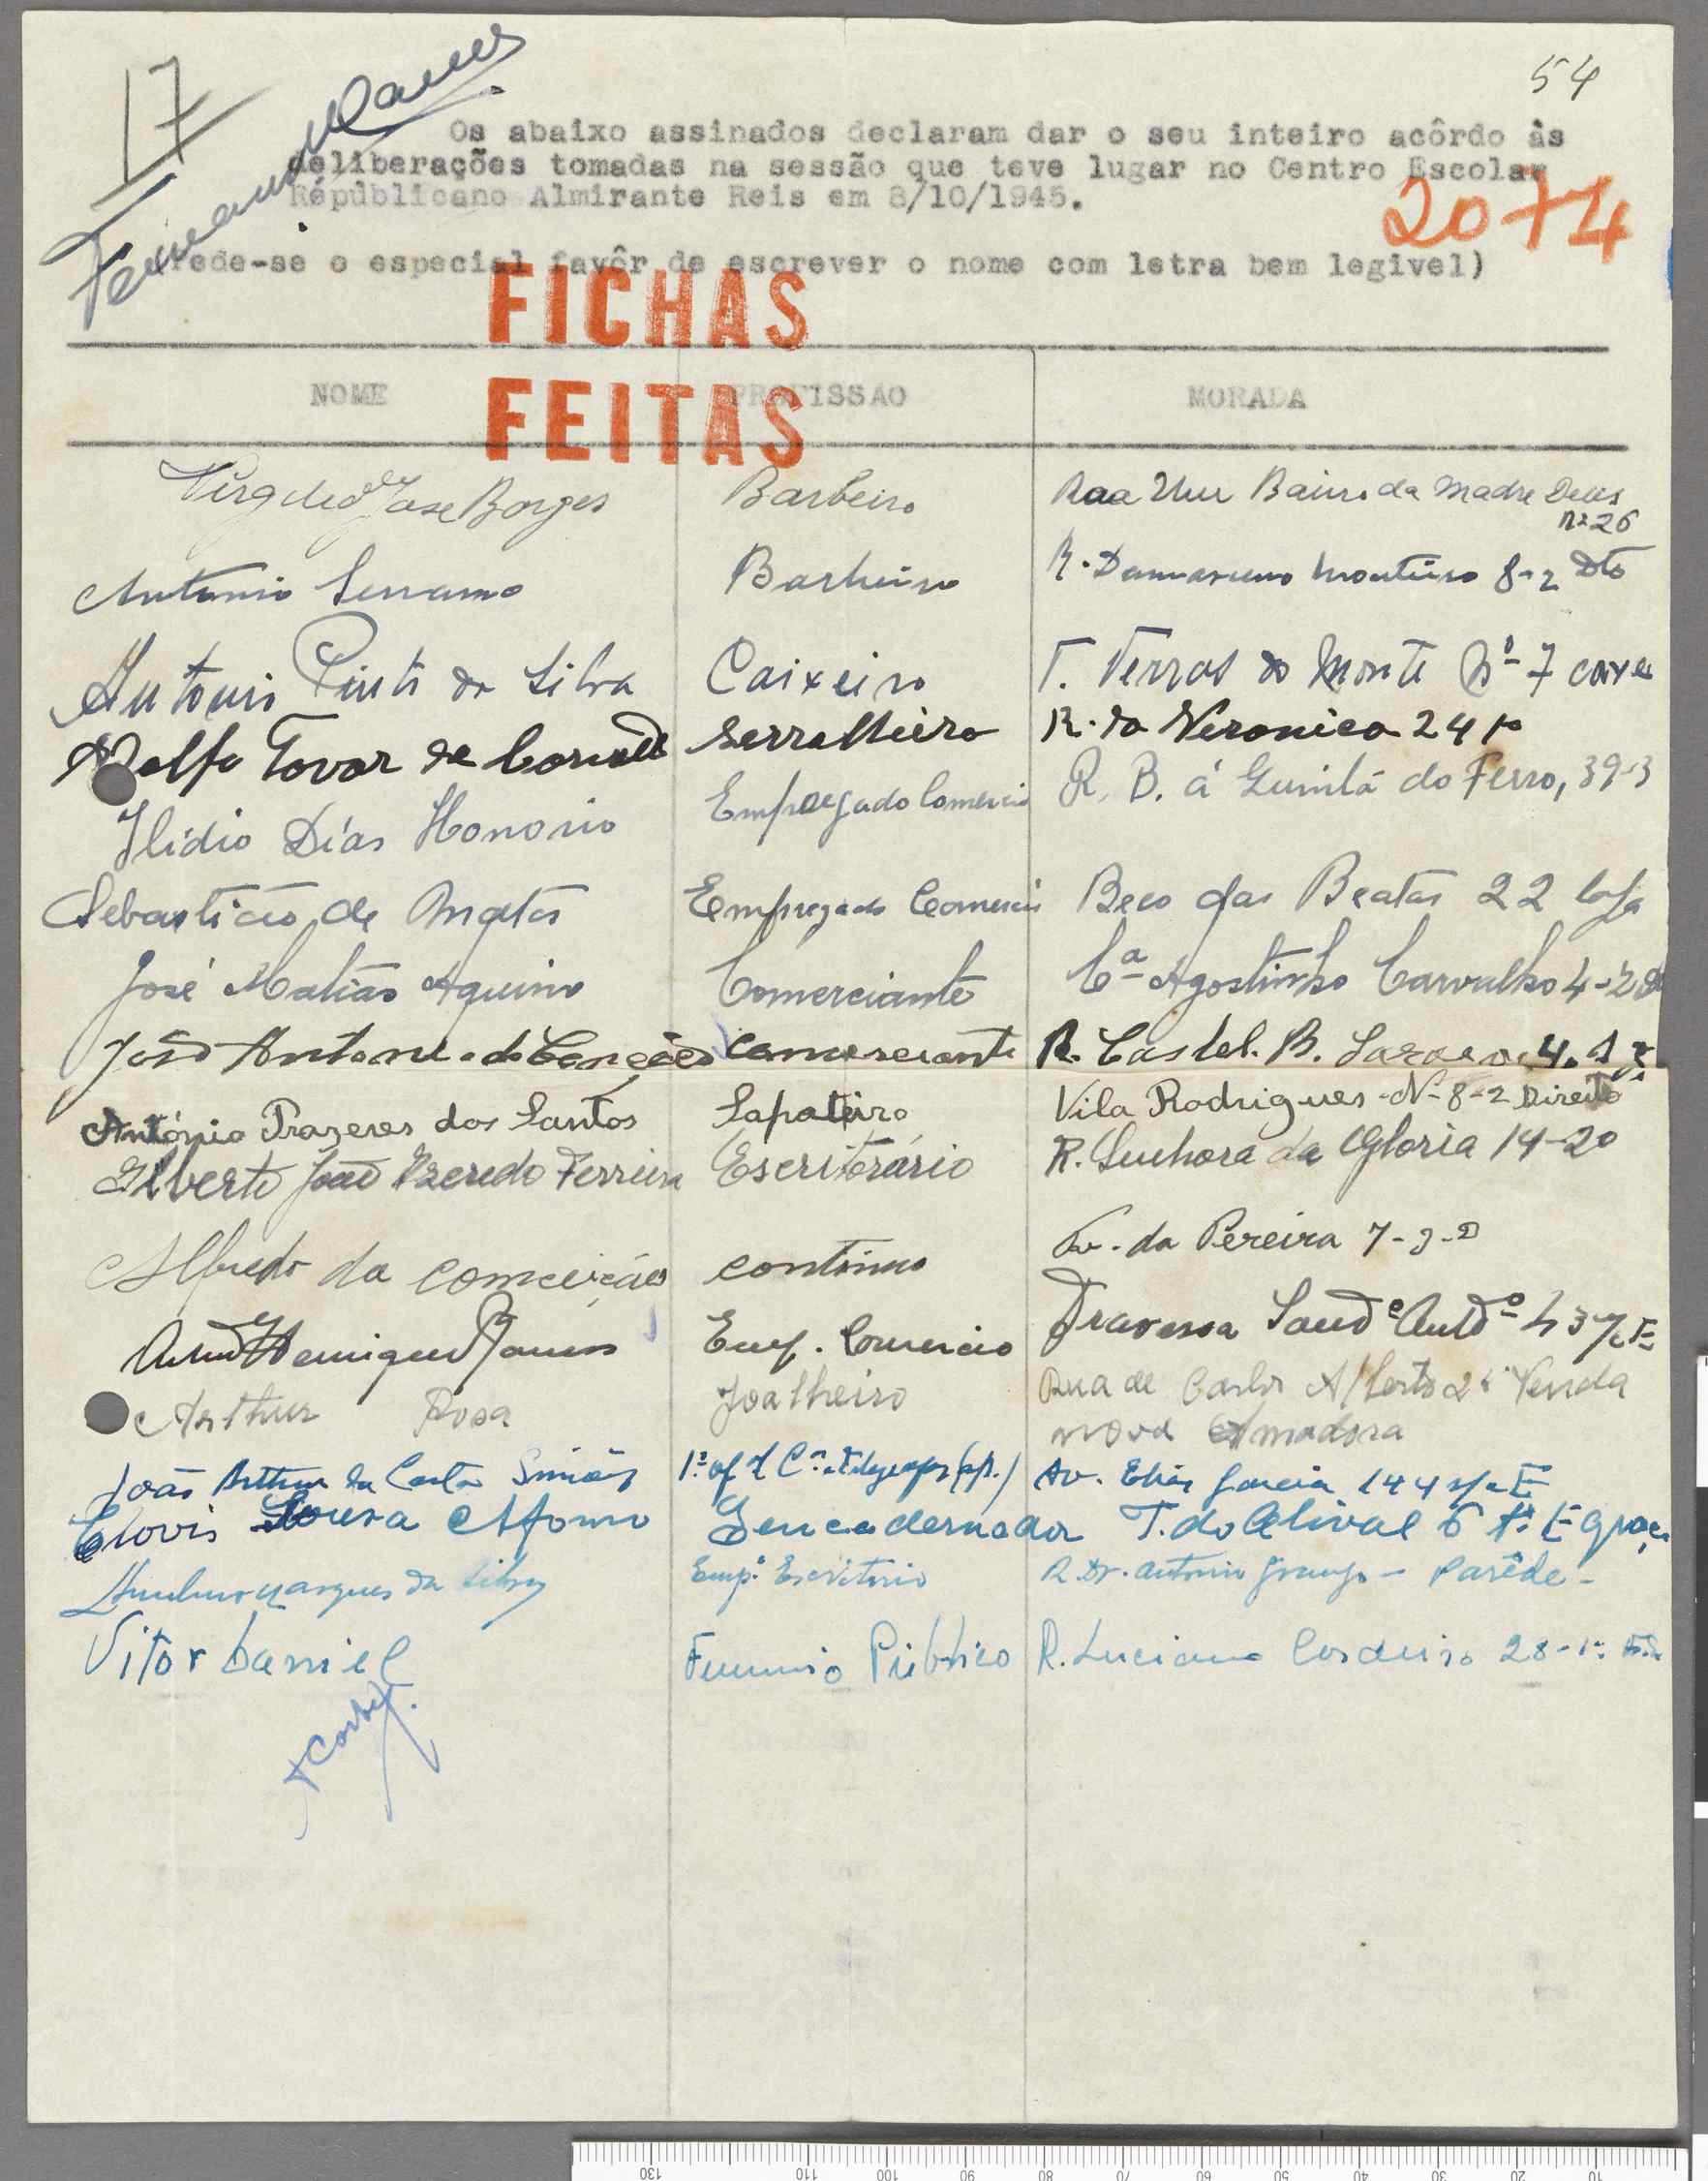 17
54
Os abaixo assinados declaram dar o seu inteiro acôrdo às
deliberações tomadas na sessão que teve lugar no Centro Escolar
Républicano Almirante Reis em 8/10/1945.
20 + 4
Pede-se o especial favôr de escrever o nome com letra bem legivel)
FICHAS
FEITAS
NOME PROFISSAO MORADA
José Borges Barbeiro Bairro da Madre Deus
nº 26
Antonio Serrano Barbeiro R. Damasceno Monteiro 8-2 Dto
Antonio Pinto da Silva Caixeiro T. Terras do Monte Nº 7 cave
Tovar de Serralheiro R. da Veronica 24
Ilidio Días Honorio Empregado Comercio R. B. á Quintá do Ferro, 39-3
Sebastião de Matos Empregado Comercio Beco das Beatas 22 loja
José Matias Aquino Comerciante Cª Agostinho Carvalho 4-2
João Antonio da Conceição Comerciante R. Castel. B. 4. 1
António Prazeres dos Santos Sapateiro Vila Rodrigues-Nº-8-2 Direito
Gilberto João Azeredo Ferreira Escriturário R. Senhora da Gloria 14-20
Alfredo da Conceição continuo da Pereira 7-3-D
Henrique Emp. Comercio Travessa
Arthur Rosa Joalheiro Rua de Carlos Alberto Venda
nova Amadora
João Arthur da Costa Simões 1º of Av. Elias Garcia 144
Clovis Sousa Afonso T. do Olival 6 1º E Graça
Marques da Silva Empº Escritorio R. Dr. Antonio - Parêde -
Vitor Daniel Público R. Luciano Cordeiro 28-1º